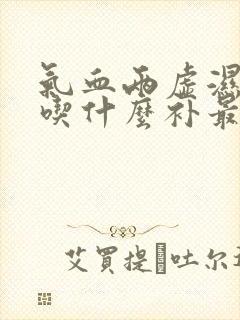 氣血兩虛濕
喫什麼补最
艾買提·吐尔